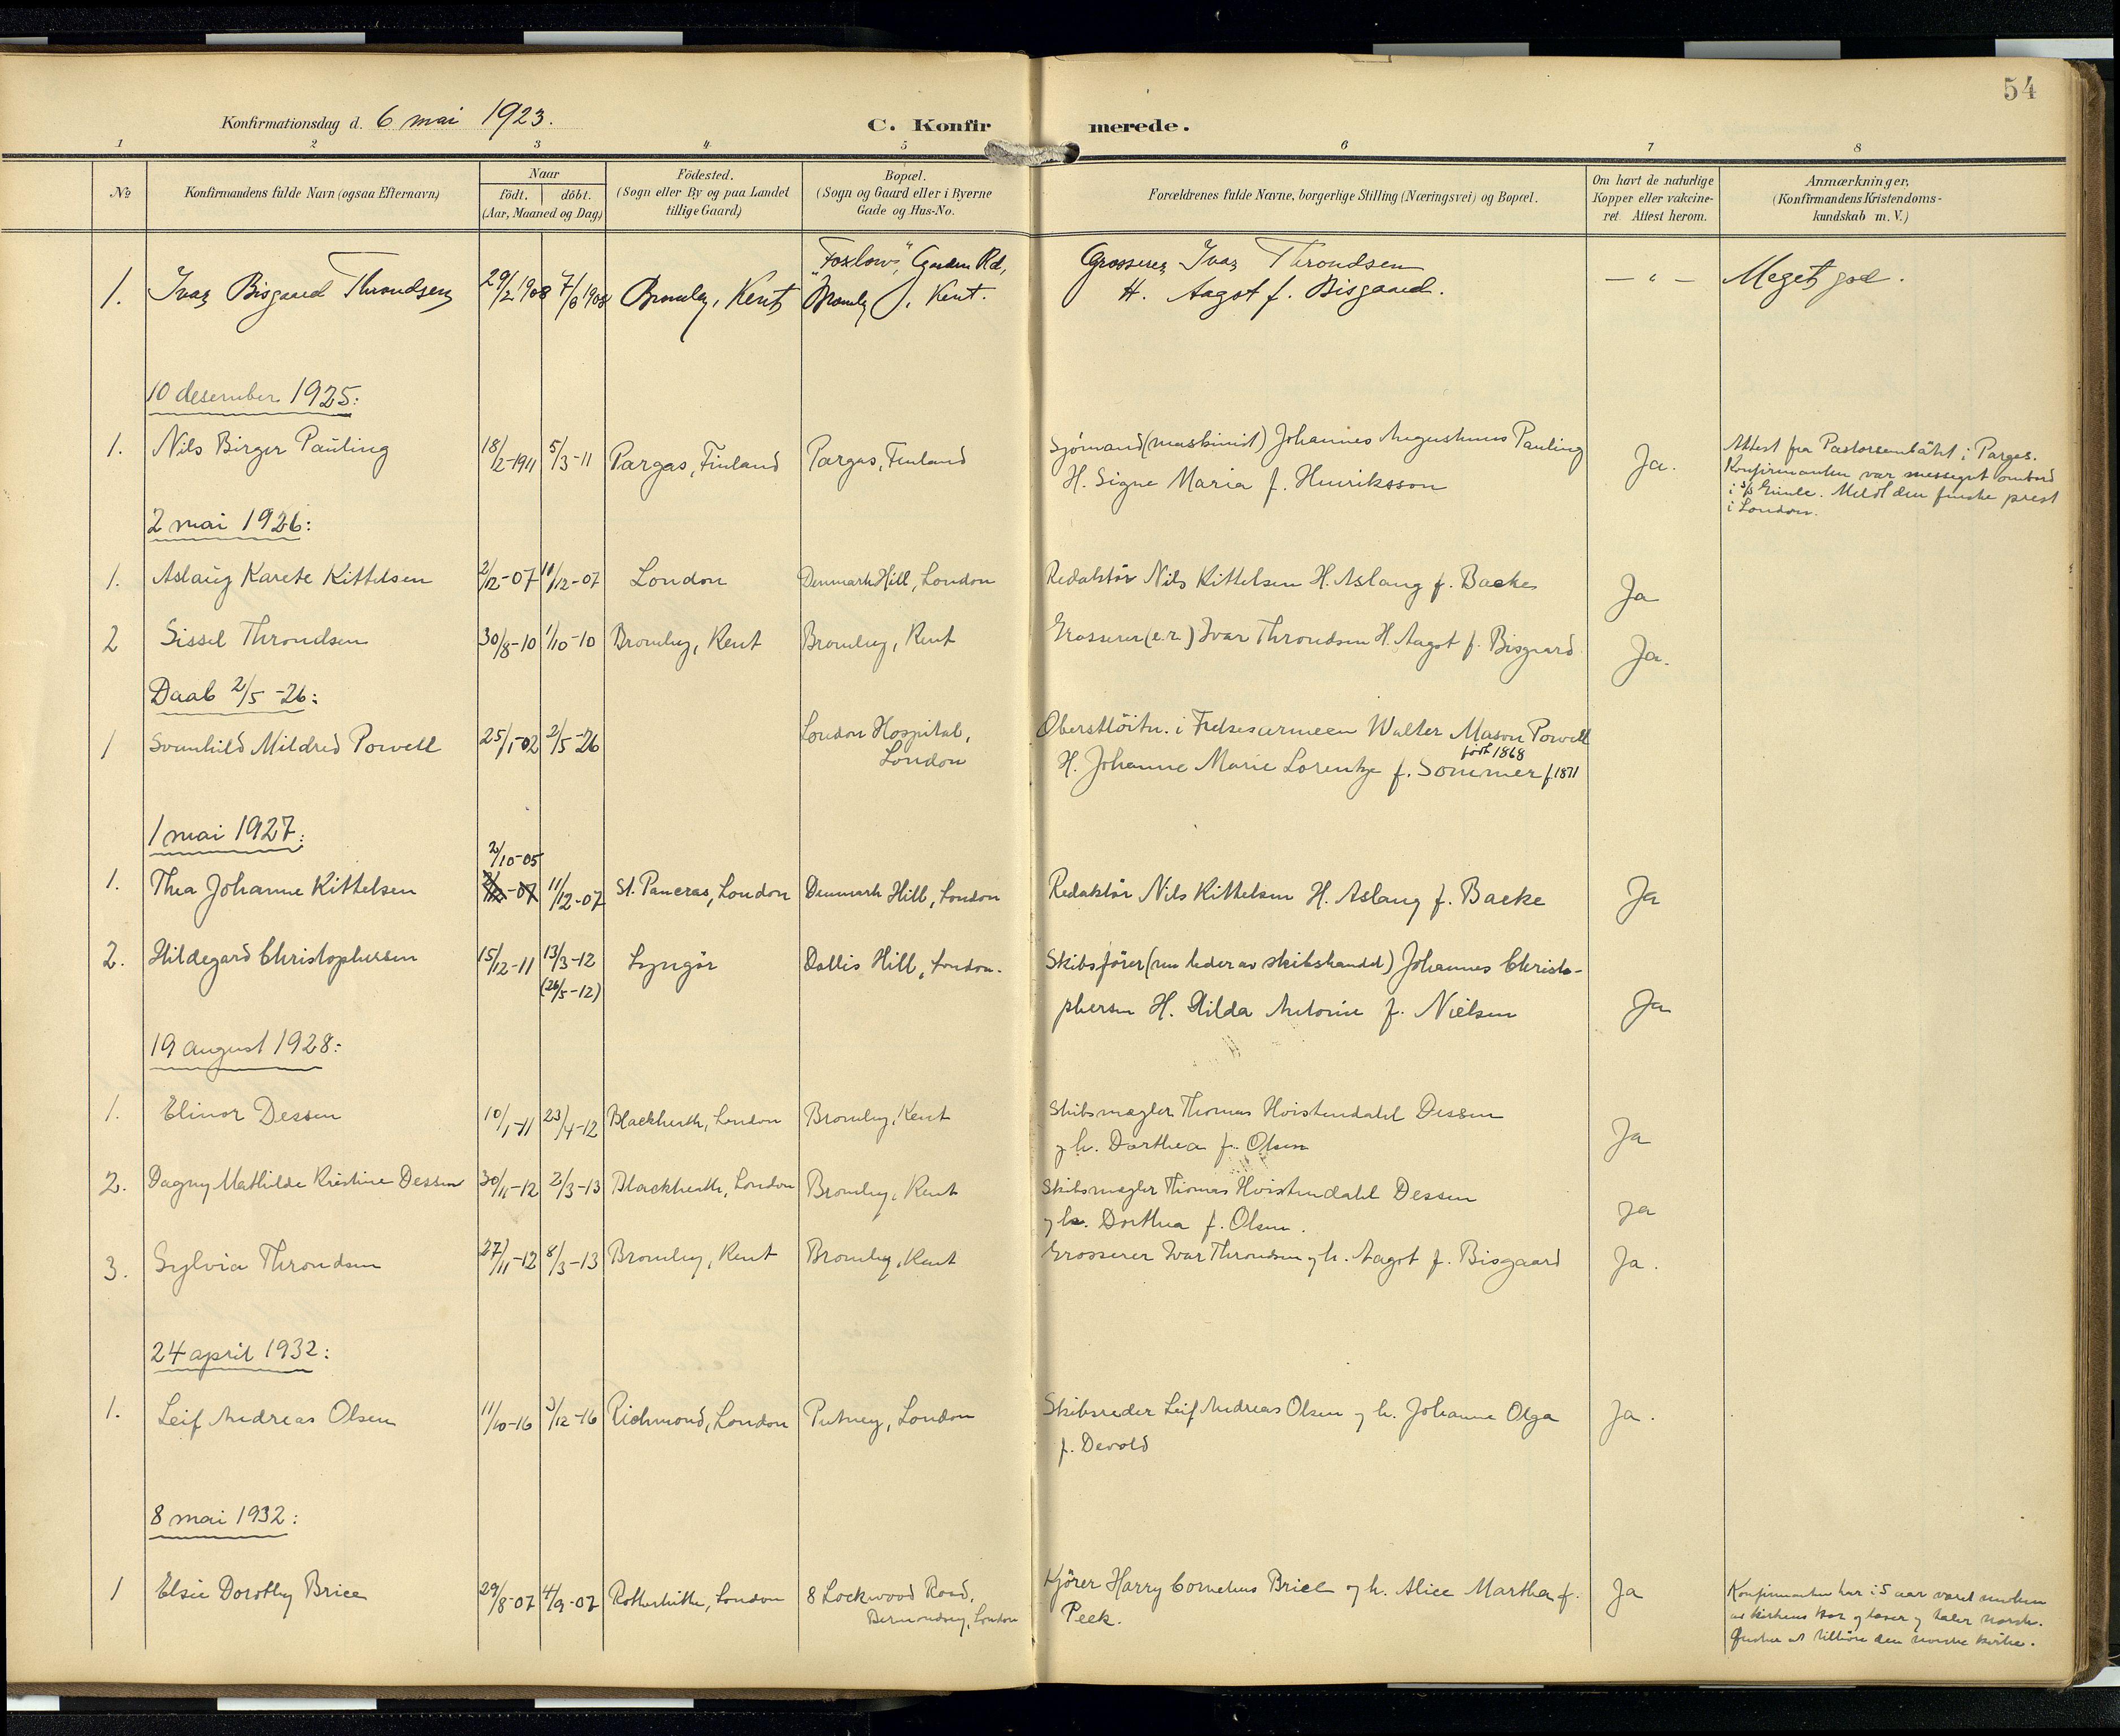 54
Konfirmationsdag d. 6 mai 1923.
C. Konfirmerede.
1 2 3 4 5 6 7 8
No Konfirmandens fulde Navn (ogsaa Efternavn) Naar födt. döbt. (Aar, Maaned og Dag) Födested. (Sogn eller By og paa Landet tillige Gaard) Bopæl. (Sogn og Gaard eller i Byerne Gade og Hus-No. Forældrenes fulde Navne, borgerlige Stilling (Næringsvei) og Bopæl. Om havt de naturlige Kopper eller vakcineret. Attest herom. Anmærkninger, (Konfirmandens Kristendomskundskab m. V.)
1. Ivar Bisgaard Throndsen 29/2 1908 7/6 1908 Bromley, Kent "Foxlow", Garden Rd, Bromley, Kent. Grosserer Ivar Throndsen
H. Aagot f. Bisgaard. — " — Meget god.
10 desember 1925:
1. Nils Birger Pauling 18/2-1911 5/3-11 Pargas, Finland Pargas, Finland Sjømand (maskinist) Johannes Augustinus Pauling
H. Signe Maria f. Henriksson Ja. Attest fra Pastorsembätet i Pargas.
Konfirmanten var messegut ombord
i S/S Meldt den finske prest
i London.
2 mai 1926:
1. Aslaug Karete Kittelsen 2/12-07 11/12-07 London Denmark Hill, London Redaktör Nils Kittelsen H. Aslaug f. Backe Ja
2 Sissel Throndsen 30/8-10 1/10-10 Bromley, Kent Bromley, Kent Grosserer (e.r.) Ivar Throndsen H. Aagot f. Bisgaard Ja.
Daab 2/5-26:
1 Svanhild Mildred Powell 25/1-02 2/5-26 London Hospital,
London Oberstlöitn. i Frelsesarmeen Walter Mason Powell
född 1868
H. Johanne Marie Lorentze f. Sommer f 1871
1 mai 1927:
2/10-05
1. Thea Johanne Kittelsen 2/12-07 11/12-07 St. Pancras, London Denmark Hill, London Redaktör Nils Kittelsen H. Aslaug f. Backe Ja
2. Hildegard Christophersen 15/12-11 13/3-12 (26/5-12) Lyngör Dollis Hill, London. Skibsförer (nu leder av skibshandel) Johannes Christo-
phersen H. Hilda Antonie f. Nielsen Ja
19 august 1928:
1. Elinor Dessen 10/1-11 23/4-12 Blackheath, London Bromley, Kent Skibsmægler Thomas Hvistendahl Dessen
og h. Dorthea f. Olsen Ja
2. Dagny Mathilde Kristine Dessen 30/11-12 2/3-13 Blackheath, London Bromley, Kent Skibsmægler Thomas Hvistendahl Dessen
og h. Dorthea f. Olsen. Ja
3. Sylvia Throndsen 27/11-12 8/3-13 Bromley, Kent Bromley, Kent Grosserer Ivar Throndsen og h. Aagot f. Bisgaard Ja.
24 april 1932:
1. Leif Andreas Olsen 11/10-16 3/12-16 Richmond, London Putney, London Skibsreder Leif Andreas Olsen og h. Johanne Olga
f. Devold Ja.
8 mai 1932:
1 Elsie Dorothy Brice 29/8-07 4/9-07 Rotherhithe, London 8 Lockwood Road,
Bermondsey, London Kjörer Harry Cornelius Brice og h. Alice Martha f.
Peek. Ja Konfirmanten har i 5 aar været medlem
av kirkens kor og læser og taler norsk.
Önsker at tilhöre den norske kirke.